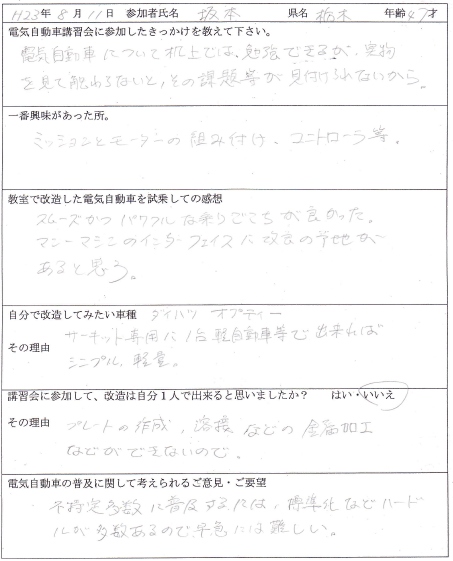 H23年 8月 11日 参加者氏名 坂本 県名 栃木 年齢 47才
電気自動車講習会に参加したきっかけを教えて下さい。
電気自動車について机上では、勉強できるが、実物
を見て触わらないと、その課題等が見付けられないから。
一番興味があった所。
ミッションとモーターの組み付け、コントローラ等。
教室で改造した電気自動車を試乗しての感想
スムーズかつパワフルな乗りごこちが良かった。
マン－マシンのインターフェイスに改良の予地が
あると思う。
自分で改造してみたい車種 ダイハツ オプティー
サーキット専用に1台軽自動車等で出来れば
その理由
シンプル、軽量。
講習会に参加して、改造は自分1人で出来ると思いましたか？ はい・いいえ
その理由 プレートの作成，溶接などの金属加工
などができないので、
電気自動車の普及に関して考えられるご意見・ご要望
不特定多数に普及するには，標準化などハード
ルが多数あるので早急には難しい。